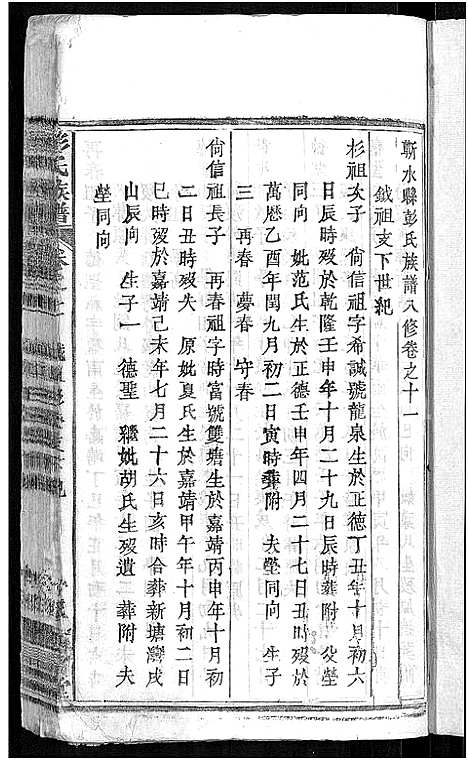 蘄水縣彭氏族譜八修卷之十一
鉞祖支下世紀
杉祖次子　尙信祖字希誠號龍泉生於正德丁丑年十月初六
日辰時歿於乾隆壬申年十月二十九日辰時葬附　父塋
同向　妣范氏生於正德壬申年四月二十七日丑時歿於
萬曆乙酉年閏九月初二日寅時葬附　夫塋同向　生子
三　再春　夢春　守春
尙信祖長子　再春祖字時富號雙塘生於嘉靖丙申年十月初
二日丑時歿失　原妣夏氏生於嘉靖甲午年十月初二日
巳時歿於嘉靖己未年七月二十六日亥時合葬新塘灣戌
山辰向　生子一　德聖　繼妣胡氏生歿遺　二葬附　夫
塋同向
彭氏族譜